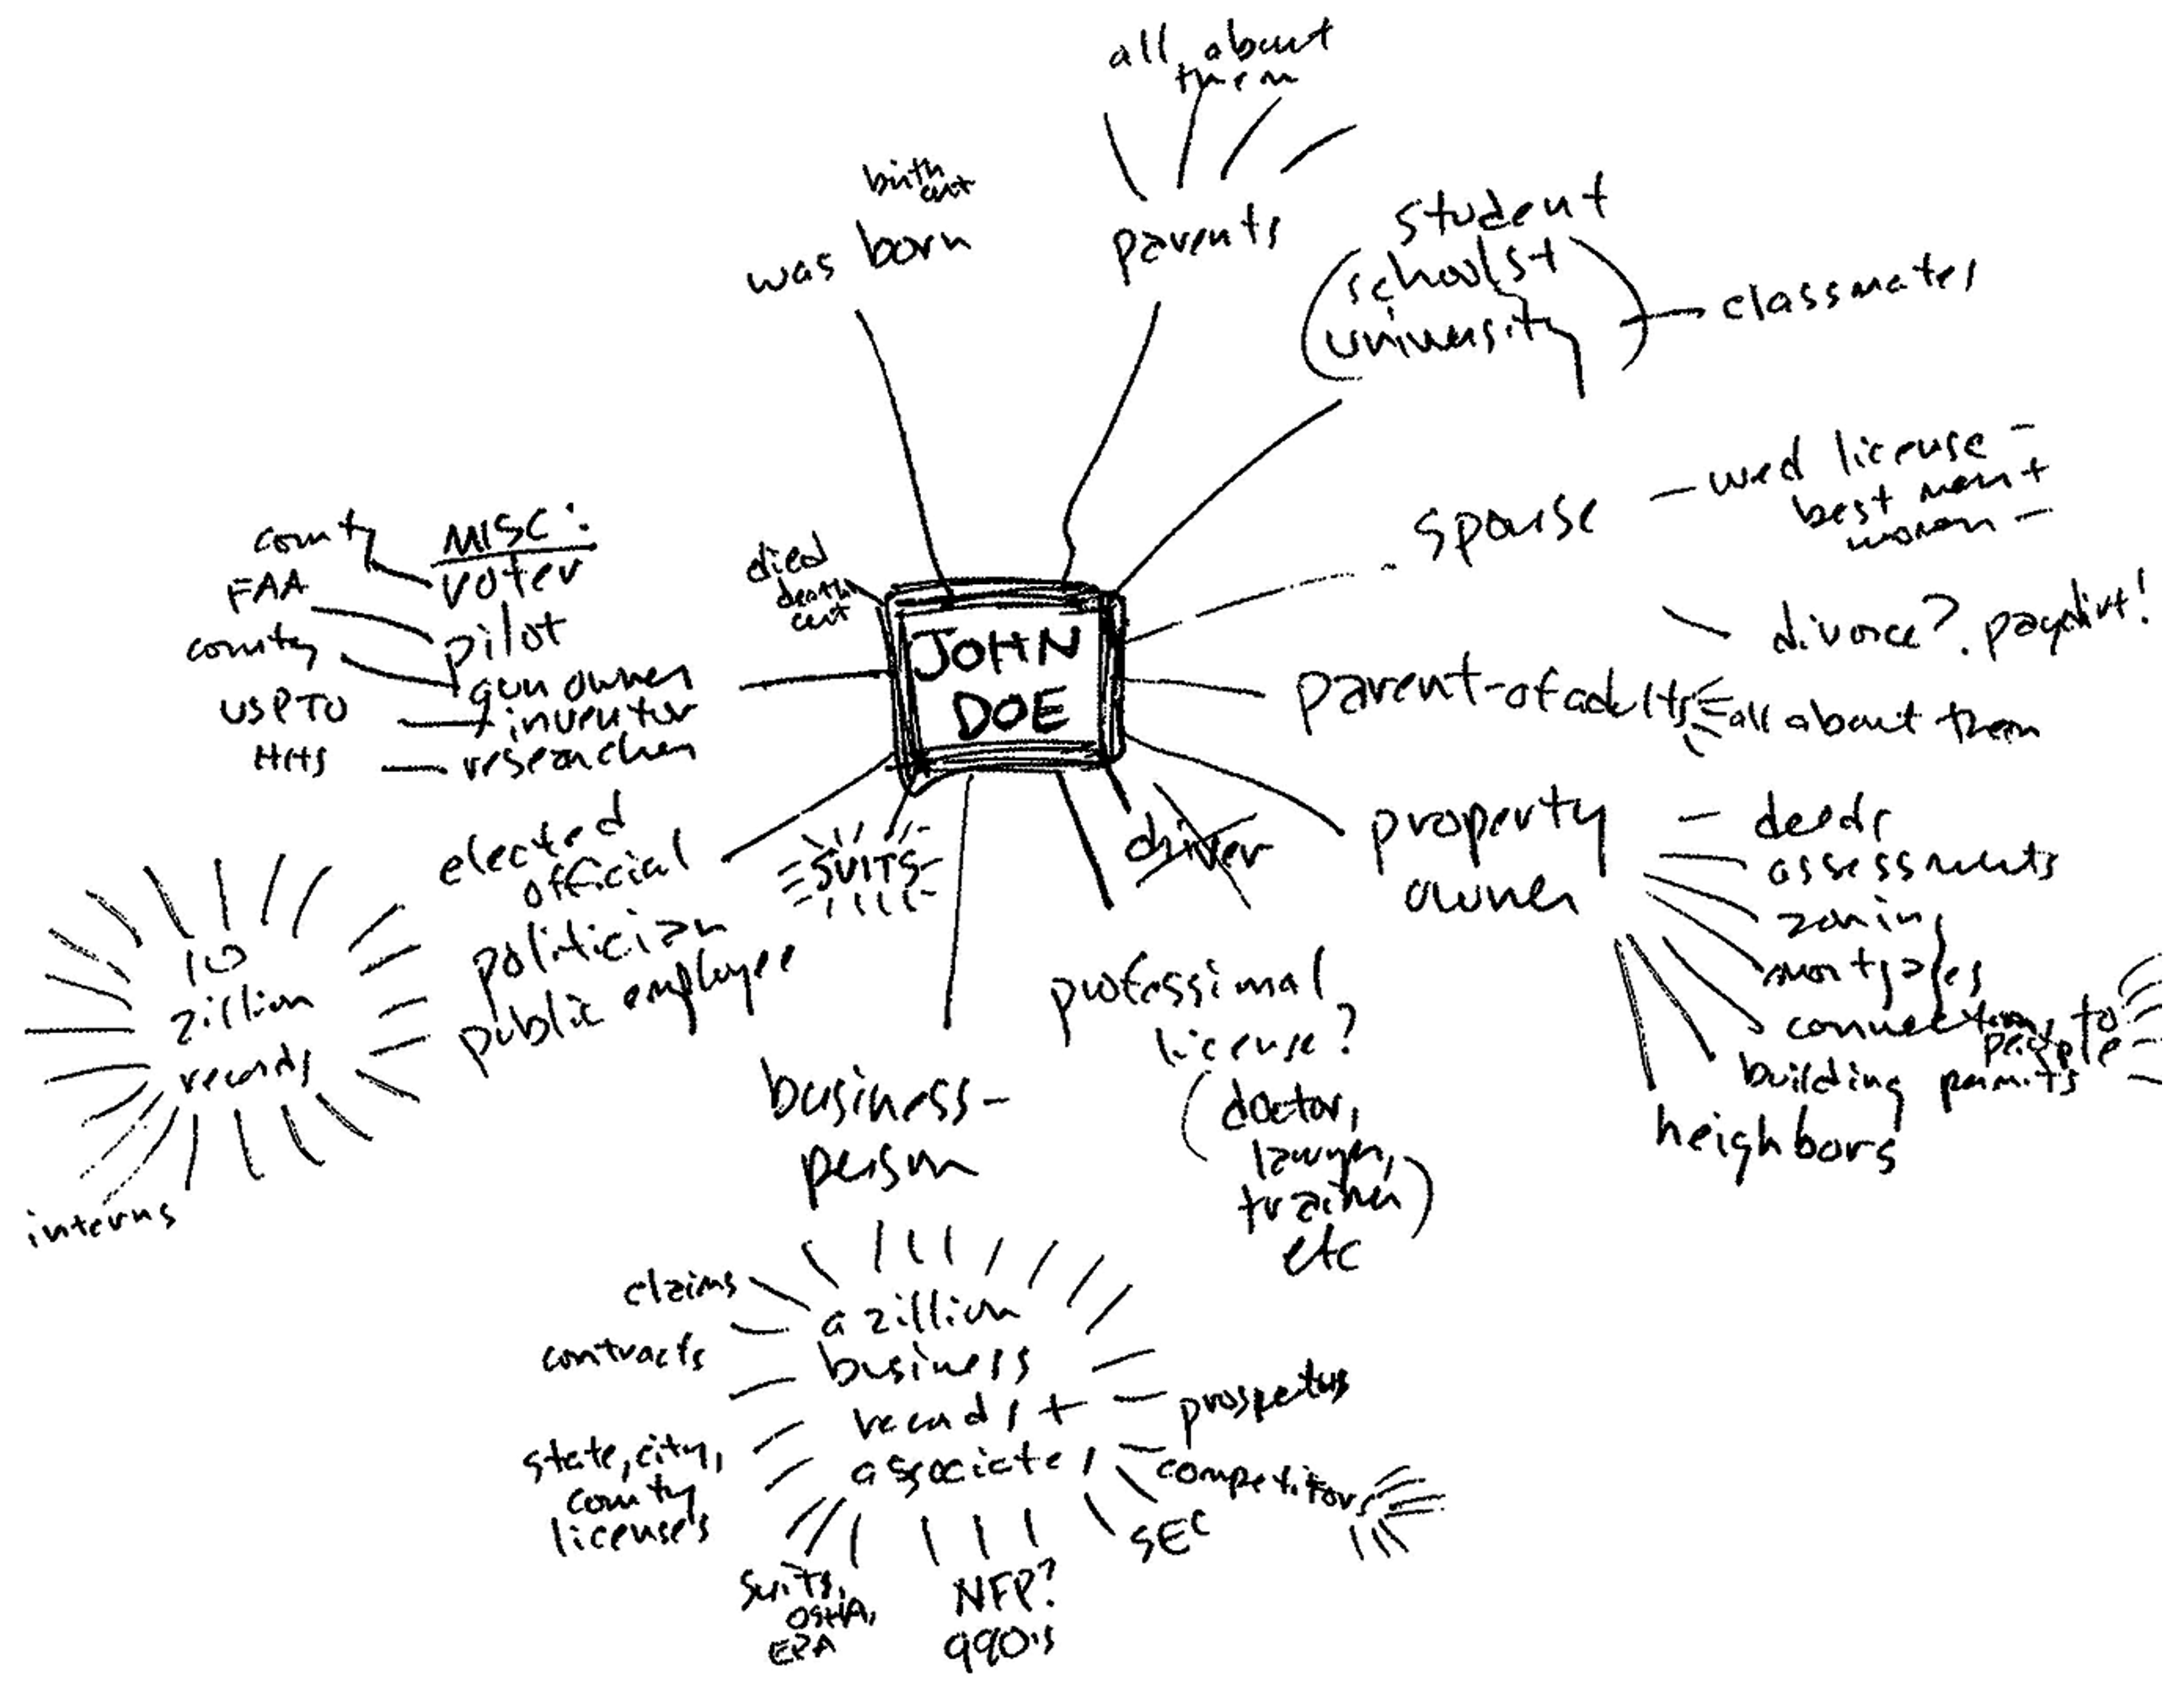 all about
them
birth
cert
was born
parents
student
schools +
university
classmates
spouse
wed license
best man +
woman
divorce? paydirt!
parent-of adults
all about them
MISC:
county
voter
FAA
pilot
county
gun owner
USPTO
inventor
HHS
researcher
died
death
cert
JOHN
DOE
elected
official
politician
public employee
10
zillion
records
interns
SUITS
driver
property
owner
deeds
assessments
zoning
mortgages
connections to
people
building permits
neighbors
professional
license?
(doctor,
lawyer,
trainer)
etc
business-
person
claims
contracts
a zillion
business
records +
associates
prospetus
competitors
SEC
state, city,
county
licenses
suits,
OSHA,
EPA
NFP?
990's